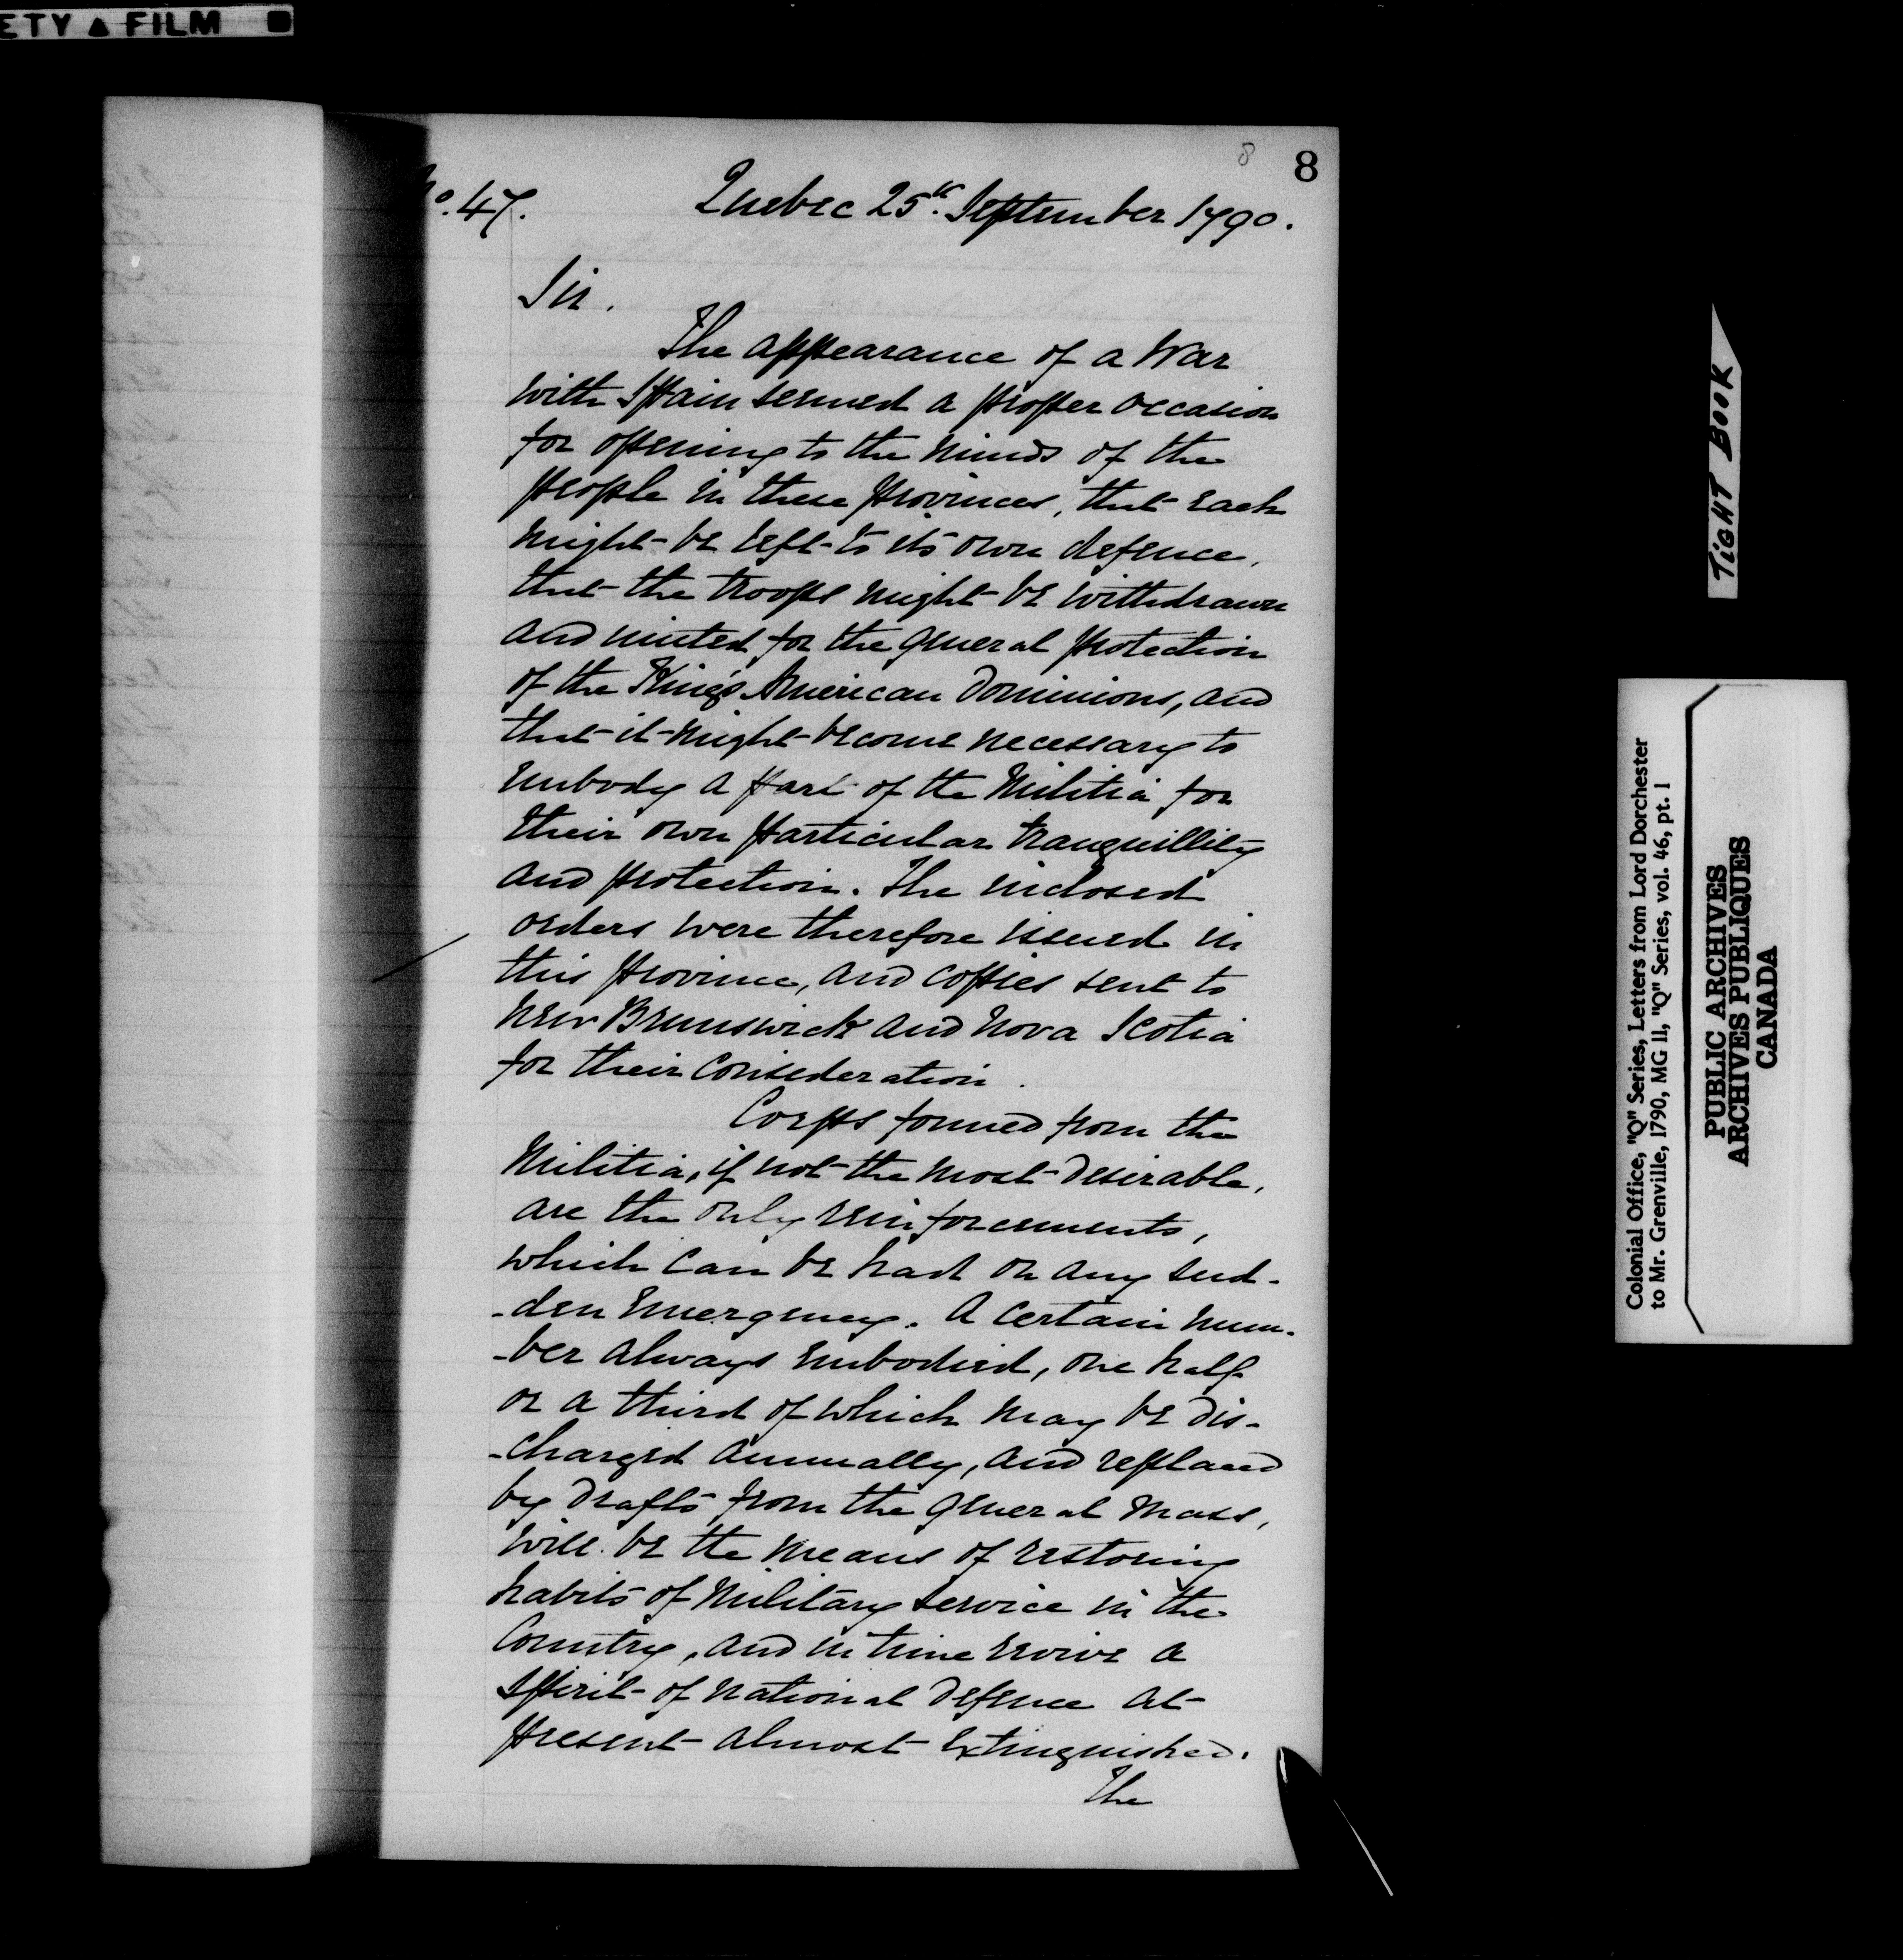 ETY ▲ FILM
8 8
No. 47. Quebec 25th. September 1790.
Sir.
The appearance of a War
with Spain seemed a proper occasion
for opening to the minds of the
people in these provinces, that each
might be left to its own defence,
that the troops might be withdrawn
and united for the general protection
of the King's American Dominions, and
that it might become necessary to
embody a part of the Militia for
their own particular tranquillity
and protection. The inclosed
orders were therefore issued in
this province, and copies sent to
New Brunswick and Nova Scotia
for their consideration.
Corps formed from the
Militia, if not the most desirable,
are the only reinforcements,
which can be had on any sud-
-den emergency. A certain num-
-ber always embodied, one half
or a third of which may be dis-
-charged annually, and replaced
by drafts from the general mass,
will be the means of restoring
habits of Military service in the
Country, and in time revive a
spirit of national defence at
present almost extinguished.
The
TIGHT BOOK
Colonial Office, "Q" Series, Letters from Lord Dorchester
to Mr. Grenville, 1790, MG 11, "Q" Series, vol. 46, pt. 1
PUBLIC ARCHIVES
ARCHIVES PUBLIQUES
CANADA